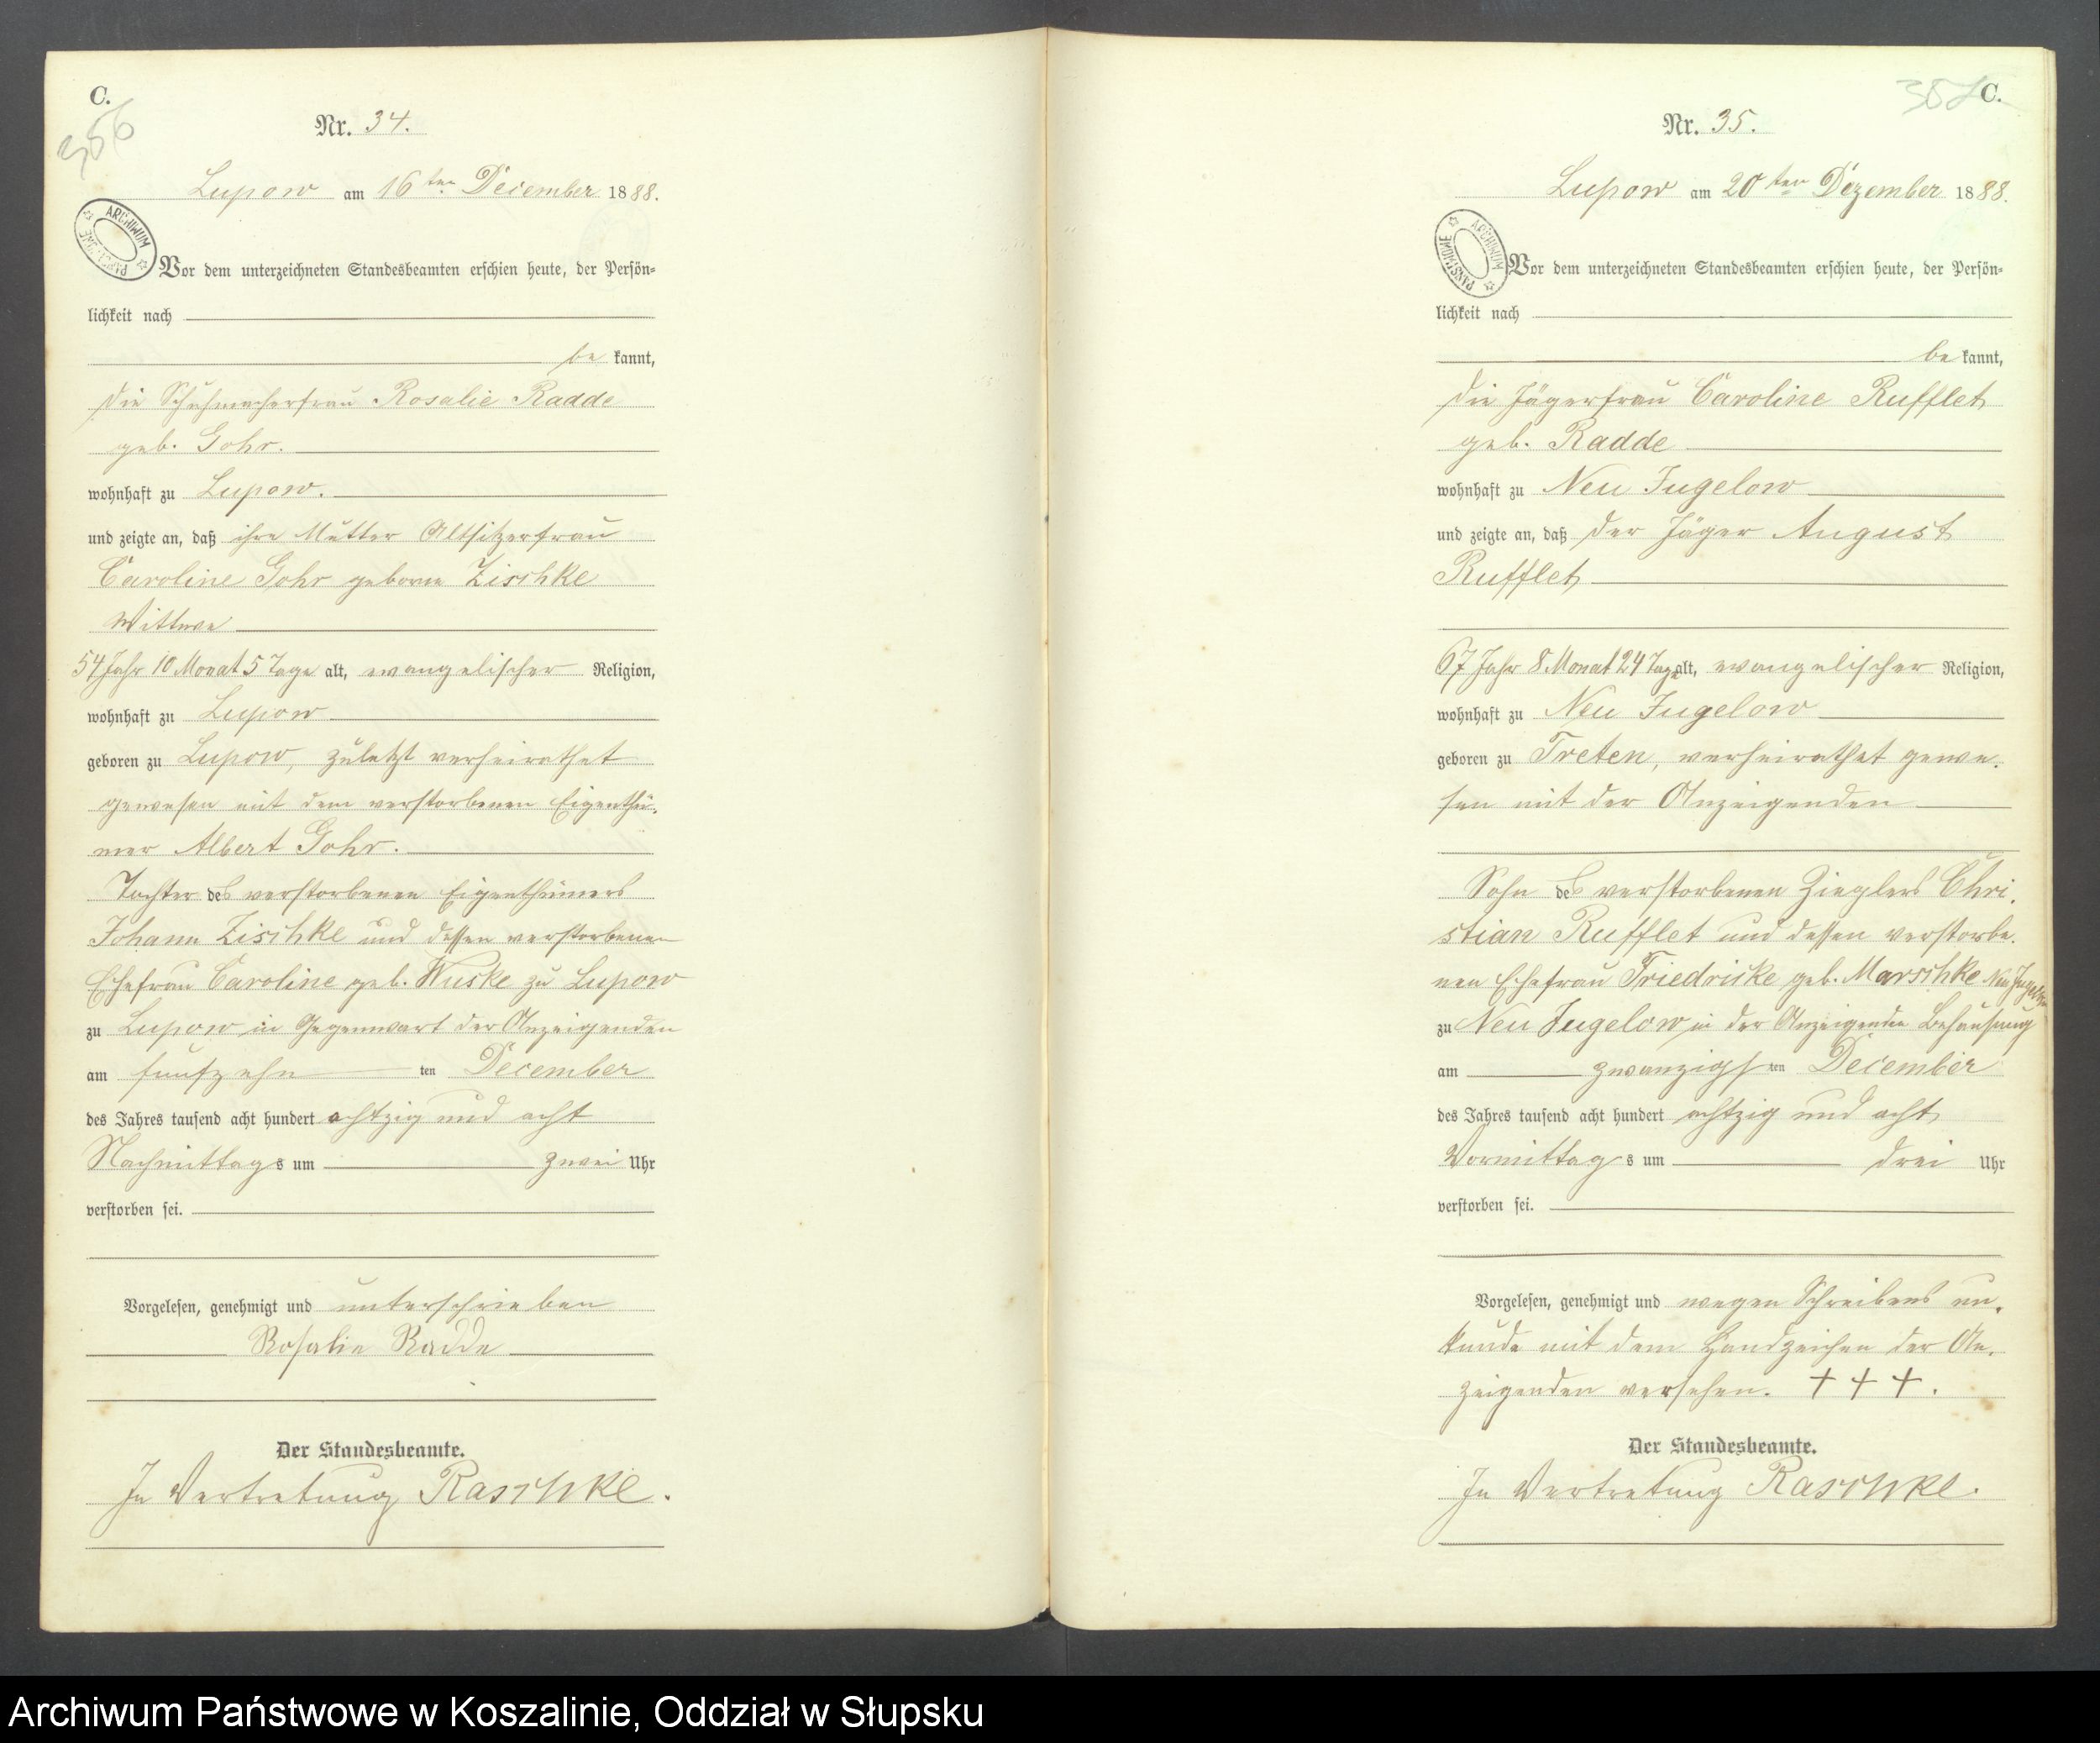 C.
356
Nr. 34.
Lupow am 16ten December 1888.
ARCHIWUM PAŃSTWOWE
Vor dem unterzeichneten Standesbeamten erschien heute, der Persön-
lichkeit nach
be kannt,
die Schuhmacherfrau Rosalie Radde
geb. Gohr.
wohnhaft zu Lupow.
und zeigte an, daß ihre Mutter Altsitzerfrau
Caroline Gohr geborne Zischke
Wittwe
54 Jahr 10 Monat 5 Tage alt, evangelischer Religion,
wohnhaft zu Lupow
geboren zu Lupow, zuletzt verheirathet
gewesen mit dem verstorbenen Eigenthü-
mer Albert Gohr.
Tochter des verstorbenen Eigenthümers
Johann Zischke und dessen verstorbenen
Ehefrau Caroline geb. Wuske zu Lupow
zu Lupow in Gegenwart der Anzeigenden
am funfzehn ten December
des Jahres tausend acht hundert achtzig und acht
Nachmittags um zwei Uhr
verstorben sei.
Vorgelesen, genehmigt und unterschrieben
Rosalie Radde
Der Standesbeamte.
In Vertretung Raschke.
C.
Nr. 35.
Lupow am 20ten Dezember 1888.
ARCHIWUM PAŃSTWOWE
Vor dem unterzeichneten Standesbeamten erschien heute, der Persön-
lichkeit nach
be kannt,
die Jägerfrau Caroline Rufflet
geb. Radde
wohnhaft zu Neu Jugelow
und zeigte an, daß der Jäger August
Rufflet
67 Jahr 8 Monat 24 Tage alt, evangelischer Religion,
wohnhaft zu Neu Jugelow
geboren zu Treten, verheirathet gewe-
sen mit der Anzeigenden
Sohn des verstorbenen Zieglers Chri-
stian Rufflet und dessen verstorbe-
nen Ehefrau Friedricke geb. Marschke Neu Jugelow
zu Neu Jugelow in der Anzeigenden Behausung
am zwanzigsten December
des Jahres tausend acht hundert achtzig und acht
Vormittags um drei Uhr
verstorben sei.
Vorgelesen, genehmigt und wegen Schreibens un-
kunde mit dem Handzeichen der An-
zeigenden versehen. + + +.
Der Standesbeamte.
In Vertretung Raschke.
Archiwum Państwowe w Koszalinie, Oddział w Słupsku